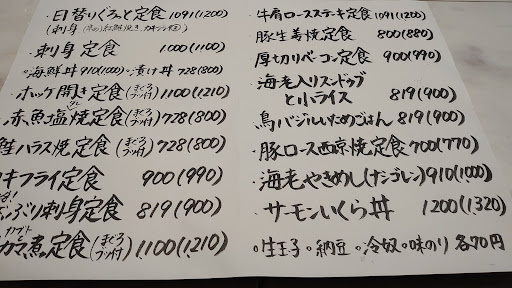 ・日替りぐるっと定食 1091(1200)
・刺身定食 1000(1100)
・海鮮丼 910(1000)・漬け丼 728(800)
・ホッケ開き定食(まぐろブツ付) 1100(1210)
・赤魚塩焼定食(まぐろブツ付) 728(800)
鮭ハラス焼定食(まぐろブツ付) 728(800)
キフライ定食 900(990)
ぶり刺身定食 819(900)
カブトカマ煮定食(まぐろブツ付) 1,100(1,210)
・牛肩ロースステーキ定食 1091(1200)
・豚生姜焼定食 800(880)
・厚切りベーコン定食 900(990)
・海老入リスンドゥブ
と小ライス 819(900)
・鳥バジルいためごはん 819(900)
・豚ロース西京焼定食 700(770)
・海老やきめし(ナシゴレン) 910(1,000)
・サーモンいくら丼 1200(1,320)
○生玉子 ○納豆 ○冷奴 ○味のり 各70円